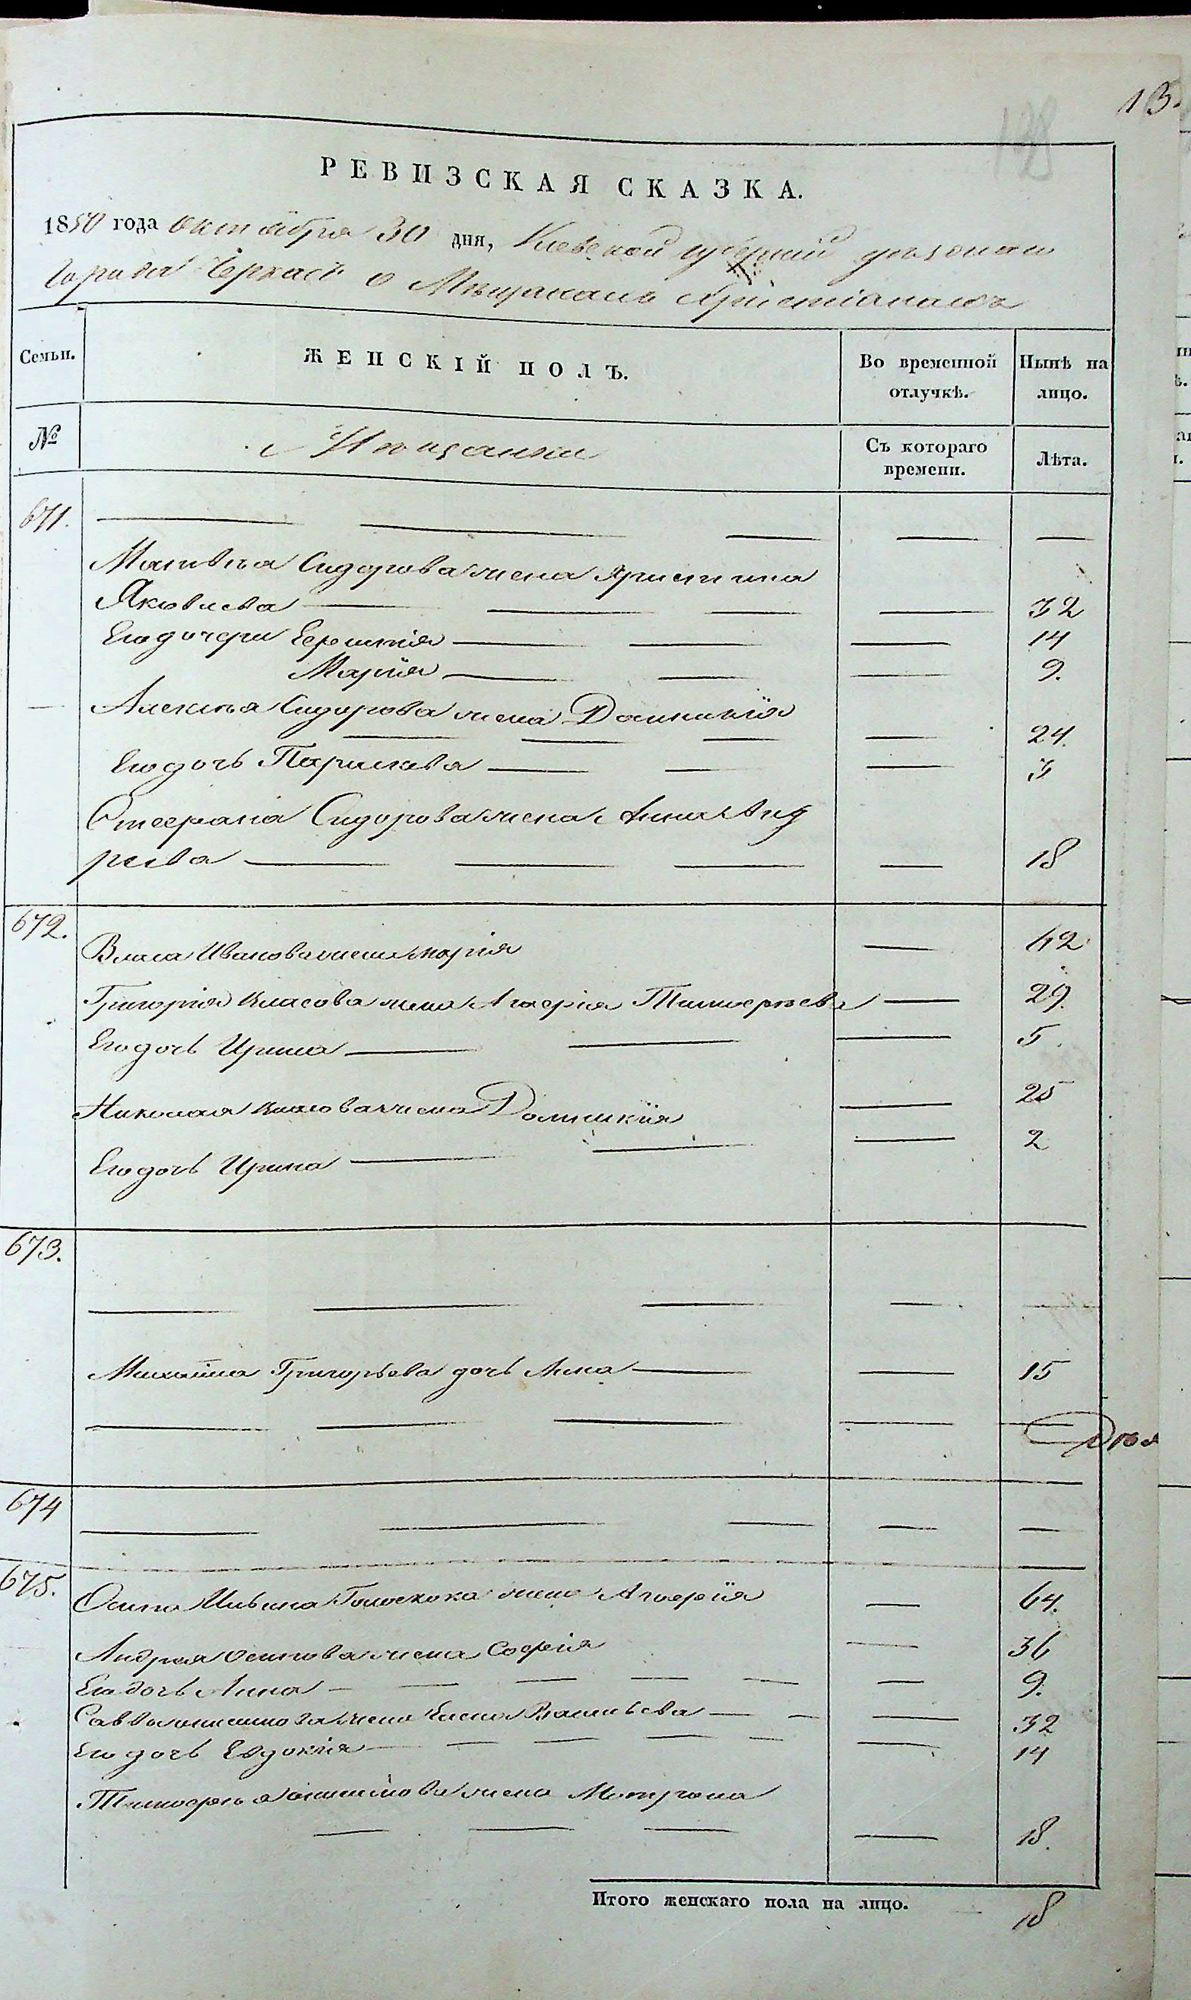 13.
138
РЕВИЗСКАЯ СКАЗКА.
1850 года Октября 30 дня, Киевской губерніи уѣзднаго
города Черкасъ о Мѣщанахъ Христіанахъ
Семьи.
ЖЕНСКІЙ ПОЛЪ.
Во временной отлучкѣ.
Нынѣ на лицо.
№
Мѣщанки
Съ котораго времени.
Лѣта.
671.
Матвѣя Сидорова жена Христина
Яковлева 32
Его дочери 14
Марія 9.
Алексѣя Сидорова жена Домникія
24.
Его дочь Параскева 3
Стефана Сидорова жена Анна Анд
реева 18
672.
Власа Иванова жена Марія 42
Григорія Власова жена Агафія Тимофеева 29.
Его дочь Ирина 5.
Николая Власова жена Домникія 25
Его дочь Ирина 2
673.
Михаила Григорьева дочь Анна 15
674
675.
Осипа Ильина жена Агафія 64.
Андрея Осипова жена Софія 36
Его дочь Анна 9.
Саввы жена Елена Васильева 32
Его дочь Евдокія 14
Тимофея жена Матрона
18.
Итого женскаго пола на лицо. 18